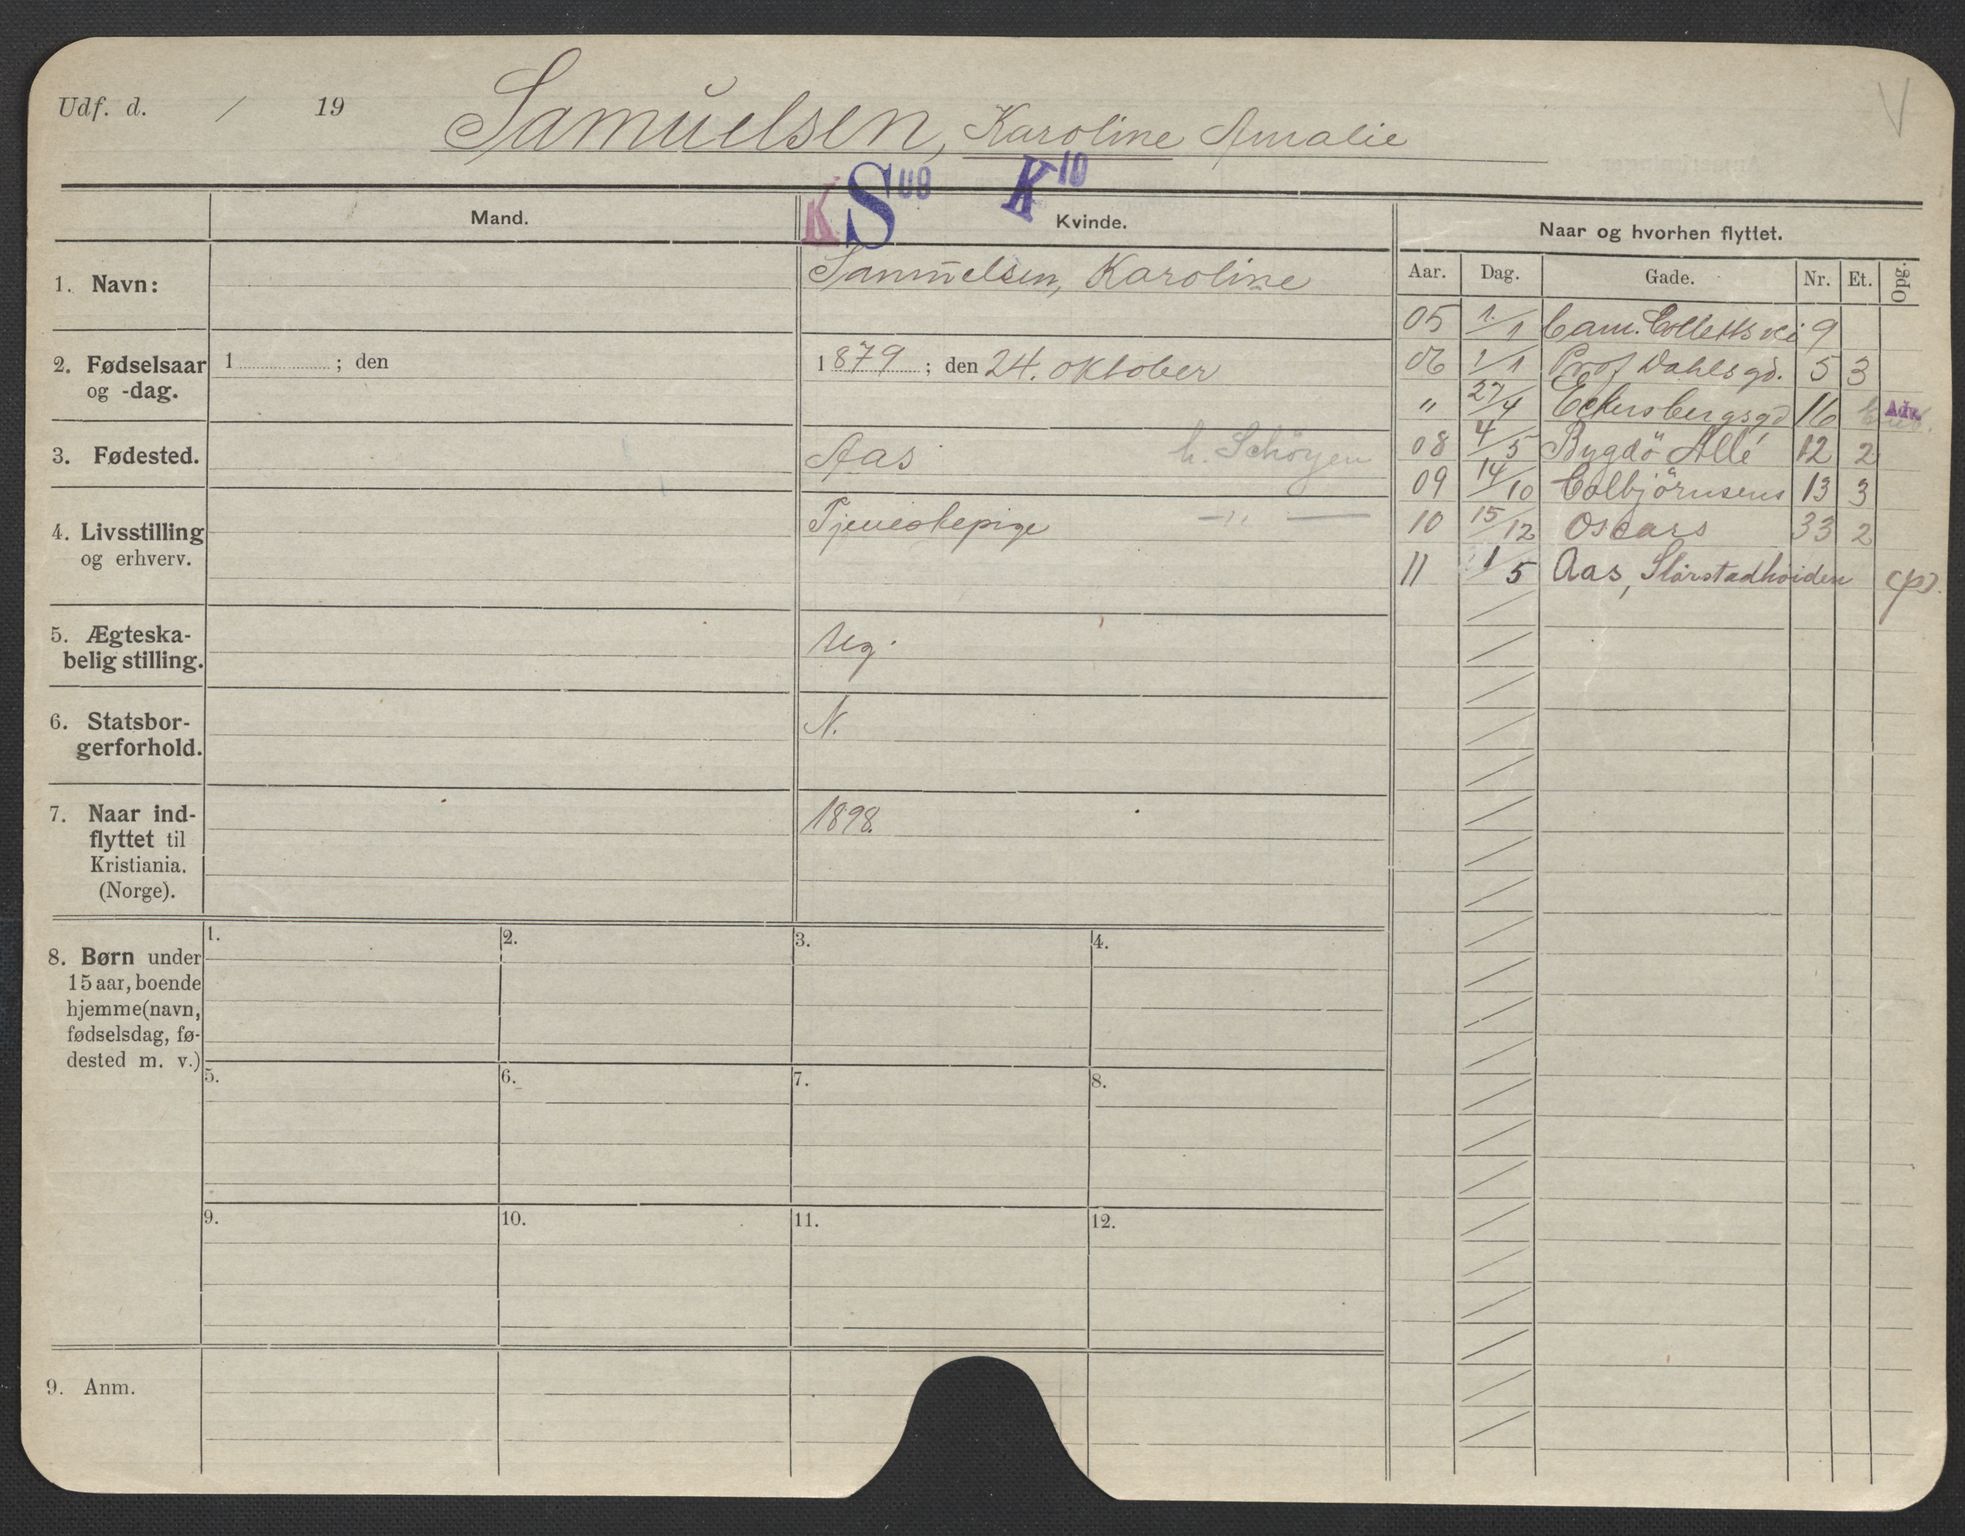 Udf. d. / 19 Samuelsen, Karoline Amalie V
K S 09 K 10
Mand. Kvinde. Naar og hvorhen flyttet.
Aar. Dag. Gade. Nr. Et. Opg.
1. Navn: Samuelsen, Karoline
2. Fødselsaar og -dag. 1 ; den 1879 ; den 24. oktober
3. Fødested. Aas h. Schöyen
4. Livsstilling og erhverv. Tjenestepige — „ —
5. Ægteskabelig stilling. Ug.
6. Statsborgerforhold. N.
7. Naar indflyttet til Kristiania. (Norge). 1898.
05 1/1 Cam. Colletts vei 9
06 1/1 Prof Dahls gd. 5 3
„ 27/4 Eckersbergsgd 16 Adr.
08 4/5 Bygdö Allé 12 2
09 14/10 Colbjörnsens 13 3
10 15/12 Oscars 33 2
11 1/5 Aas,
8. Børn under
15 aar, boende
hjemme (navn,
fødselsdag, fø-
dested m. v.)
1. 2. 3. 4.
5. 6. 7. 8.
9. 10. 11. 12.
9. Anm.